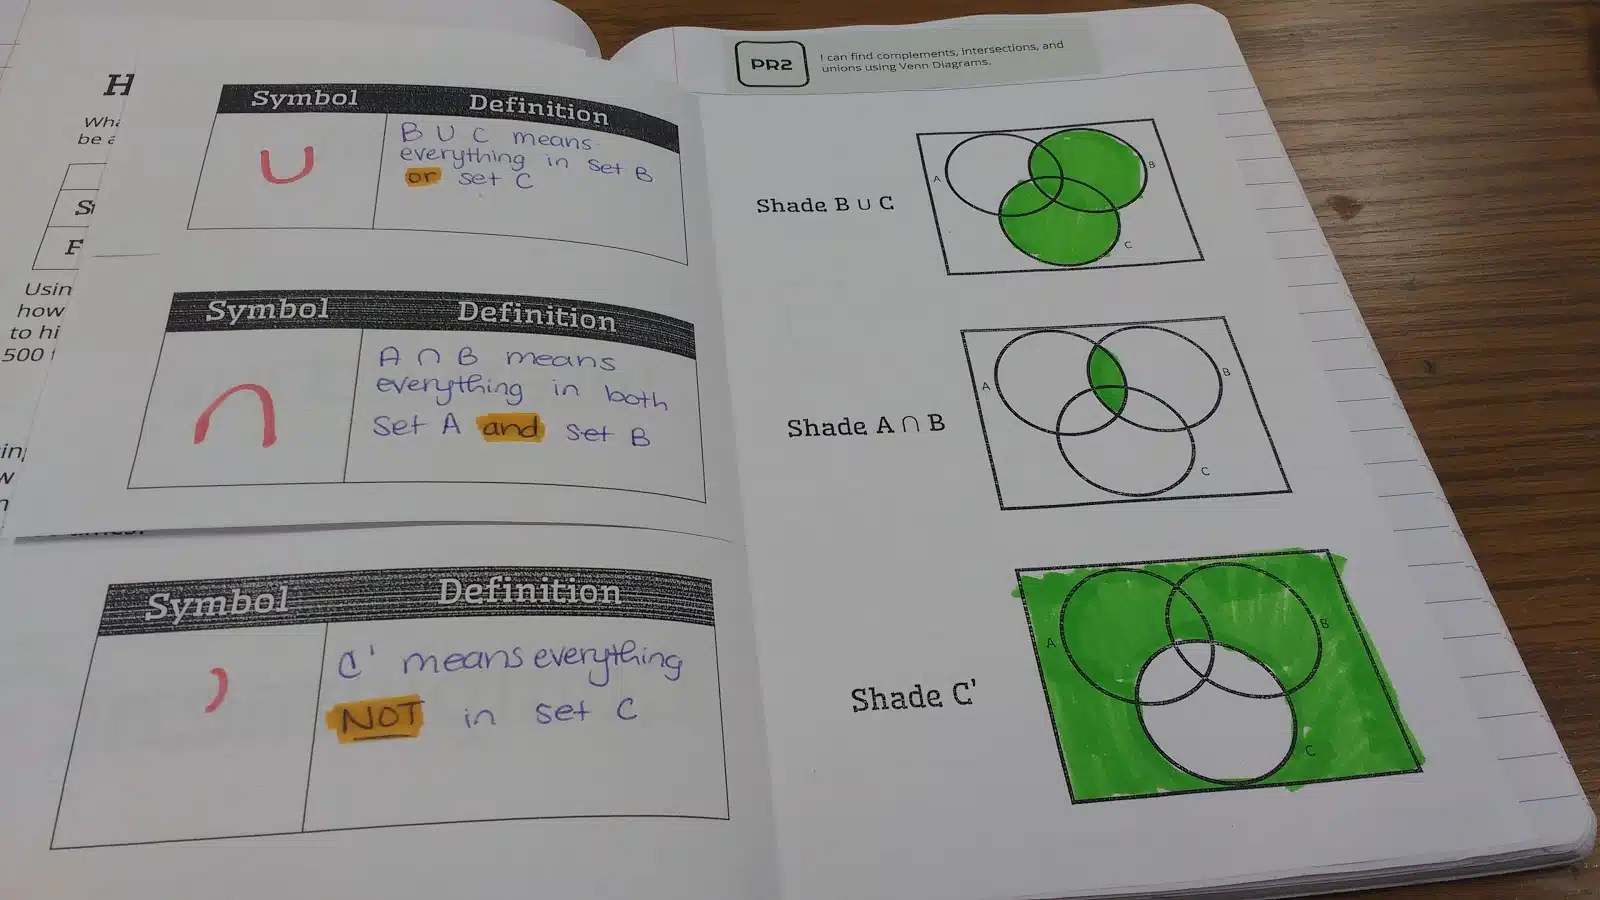 H
Wha
be a
St
F
Usin
how
to hi
500
Symbol Definition
∪
B ∪ C means
everything in set B
or set C
Symbol Definition
∩
A ∩ B means
everything in both
set A and set B
Symbol Definition
'
C' means everything
NOT in set C
PR2
I can find complements, intersections, and
unions using Venn Diagrams.
Shade B ∪ C
A
B
C
Shade A ∩ B
A
B
C
Shade C'
A
B
C